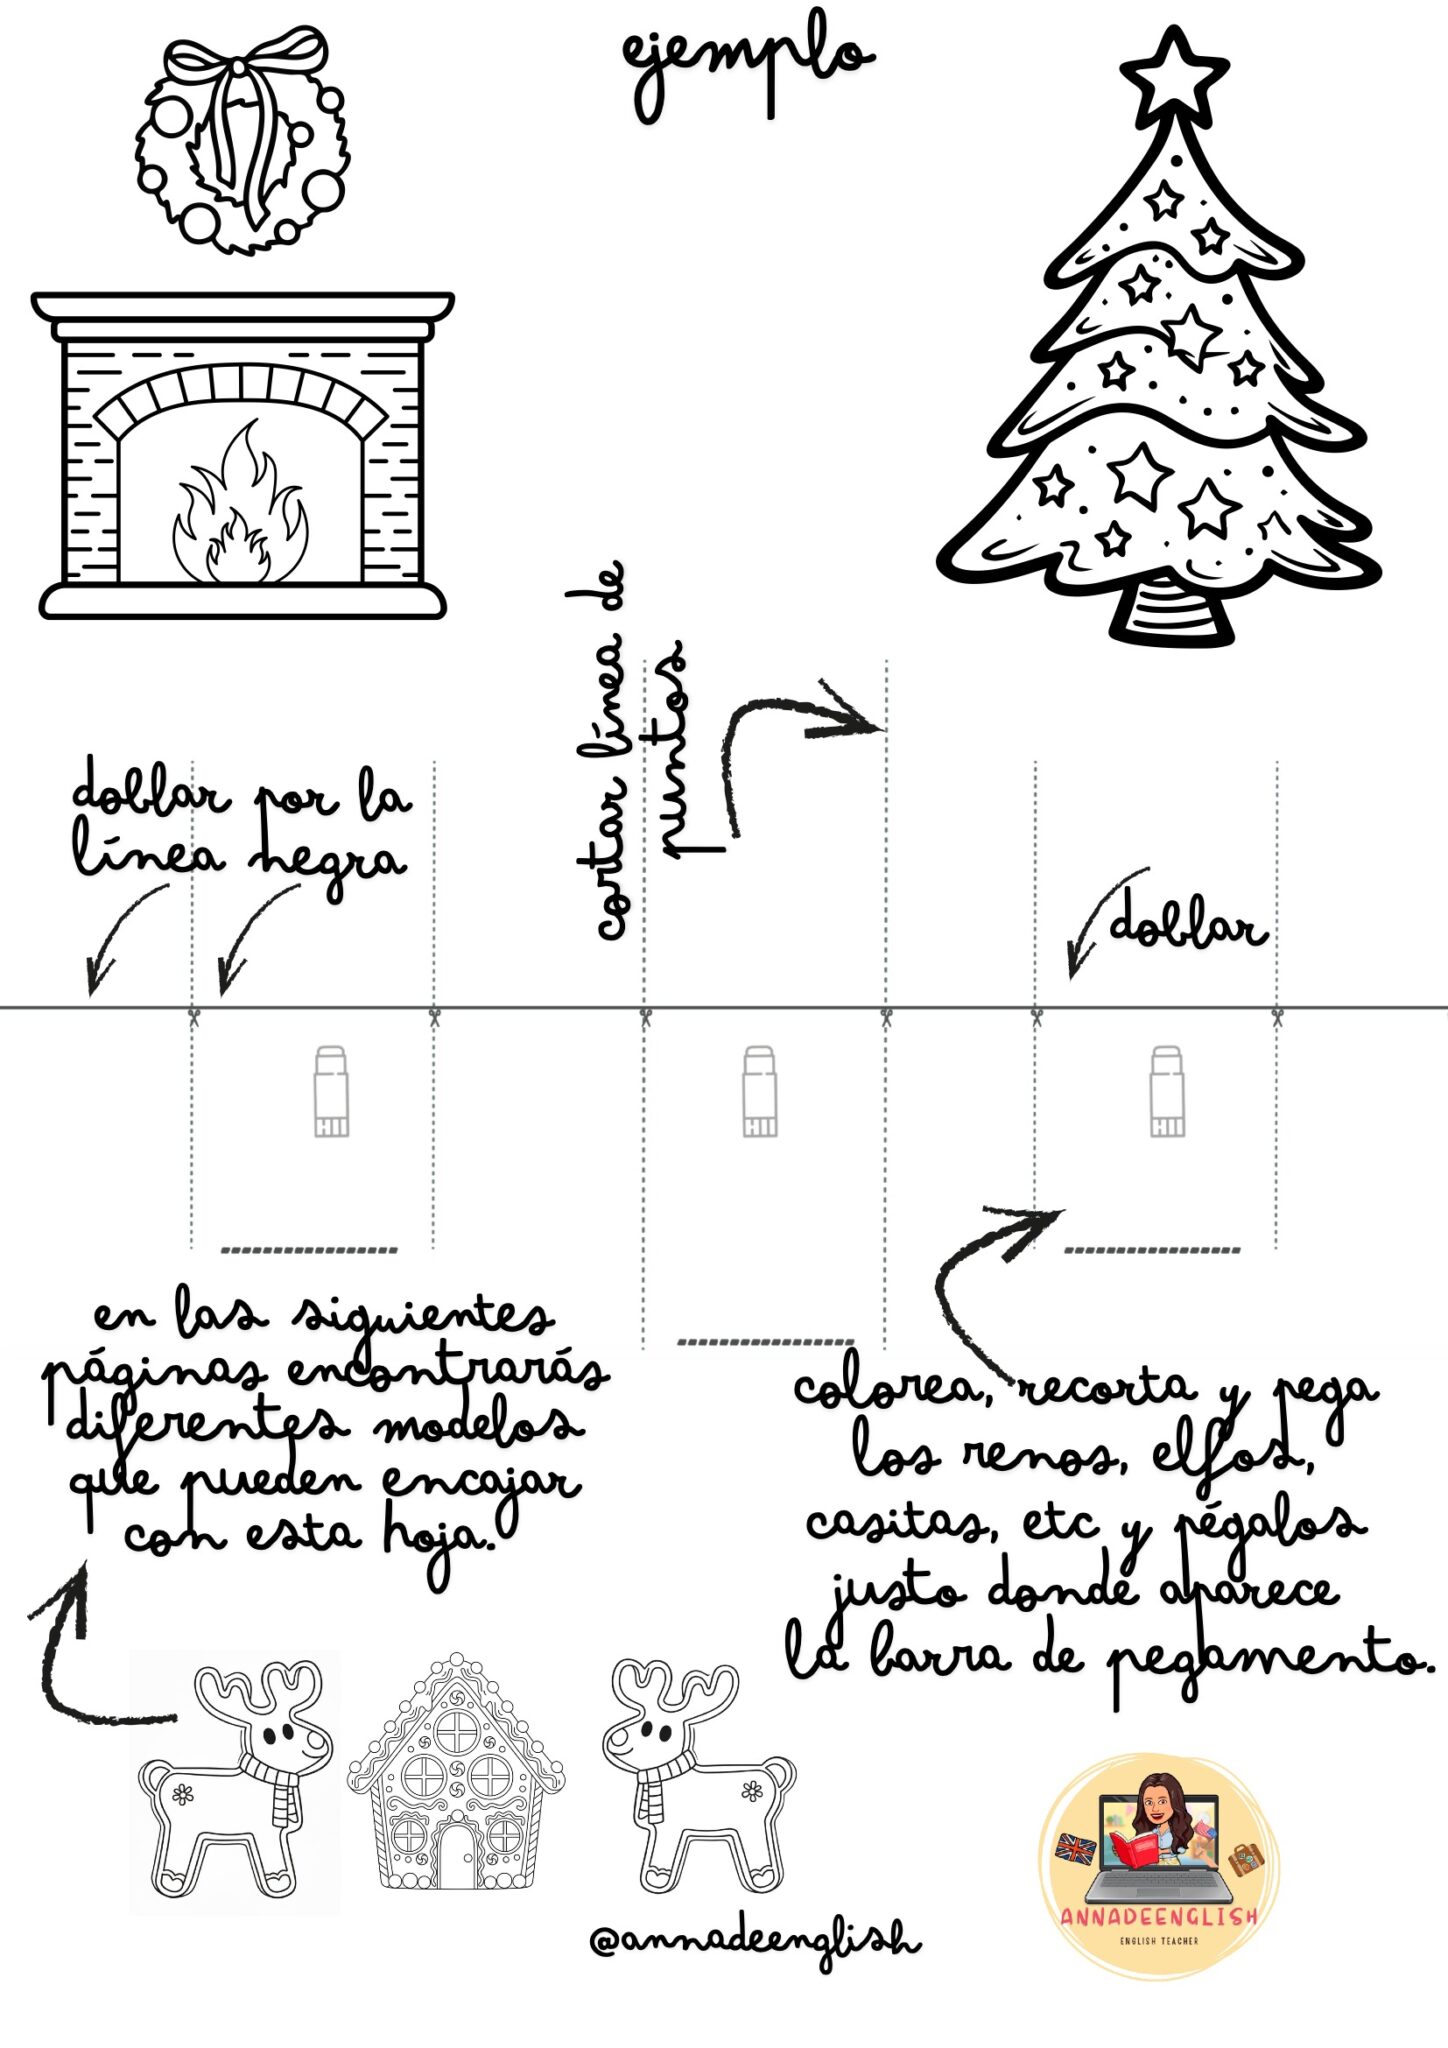 ejemplo
cortar línea de
puntos
doblar por la
línea negra
doblar
en las siguientes
páginas encontrarás
diferentes modelos
que pueden encajar
con esta hoja.
colorea, recorta y pega
los renos, elfos,
casitas, etc y pégalos
justo donde aparece
la barra de pegamento.
@annadeenglish
ANNADEENGLISH
ENGLISH TEACHER